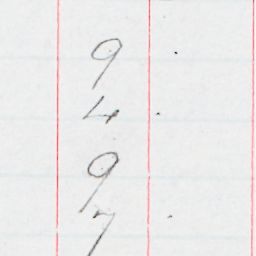 9
4
9
7